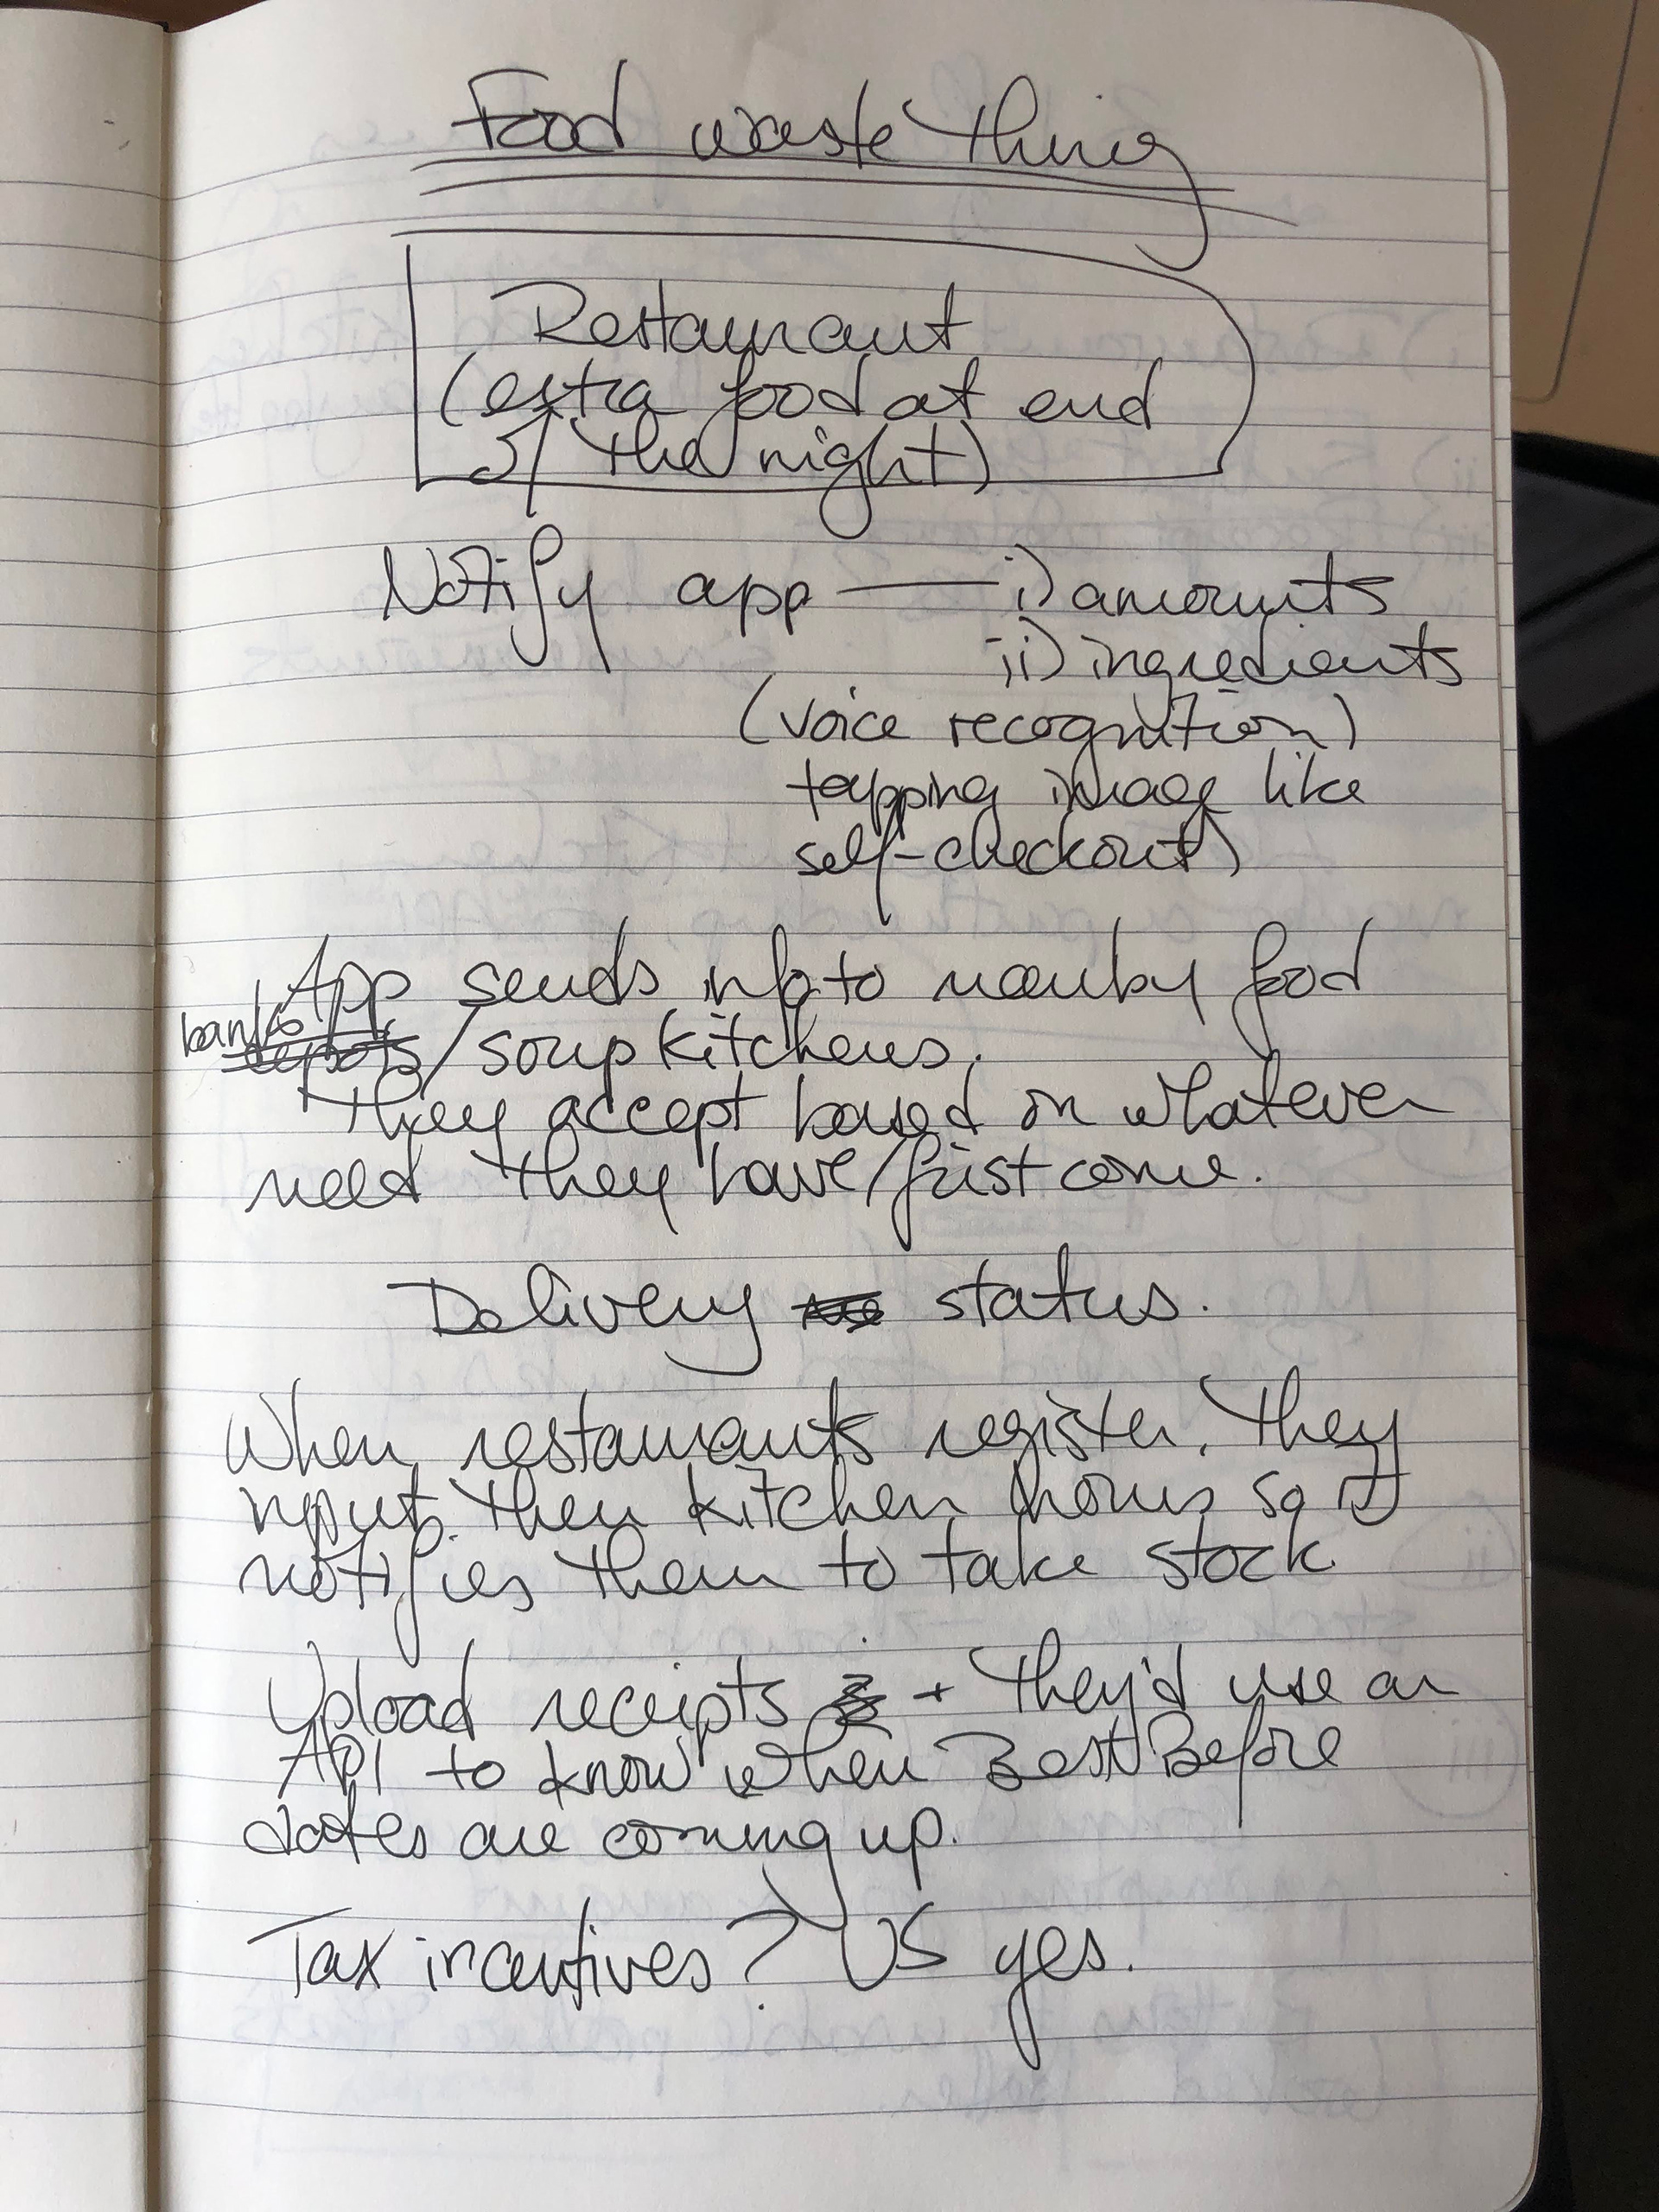 Food waste thing
Restaurant
(extra food at end
of the night)
Notify app — i) amounts
ii) ingredients
(voice recognition)
tapping image like
self-checkout)
App sends info to nearby food
banks
depots / soup kitchens.
They accept based on whatever
need they have/first come.
Delivery status.
When restaurants register, they
input their kitchen hours so it
notifies them to take stock
Upload receipts + they'd use an
API to know when Best Before
dates are coming up.
Tax incentives? US yes.